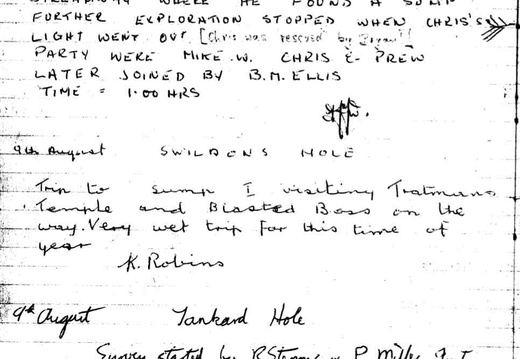 STREAMWAY WHERE HE FOUND A SUMP
FURTHER EXPLORATION STOPPED WHEN CHRIS'S
LIGHT WENT OUT [Chris was rescued by
PARTY WERE MIKE.W. CHRIS & PREW
LATER JOINED BY B.M.ELLIS
TIME = 1.00 HRS
9th August SWILDONS HOLE
Trip to sump I visiting Tratmans
Temple and Blasted Boss on the
way. Very wet trip for this time of
year
K. Robins
9th August Tankard Hole
Survey started by